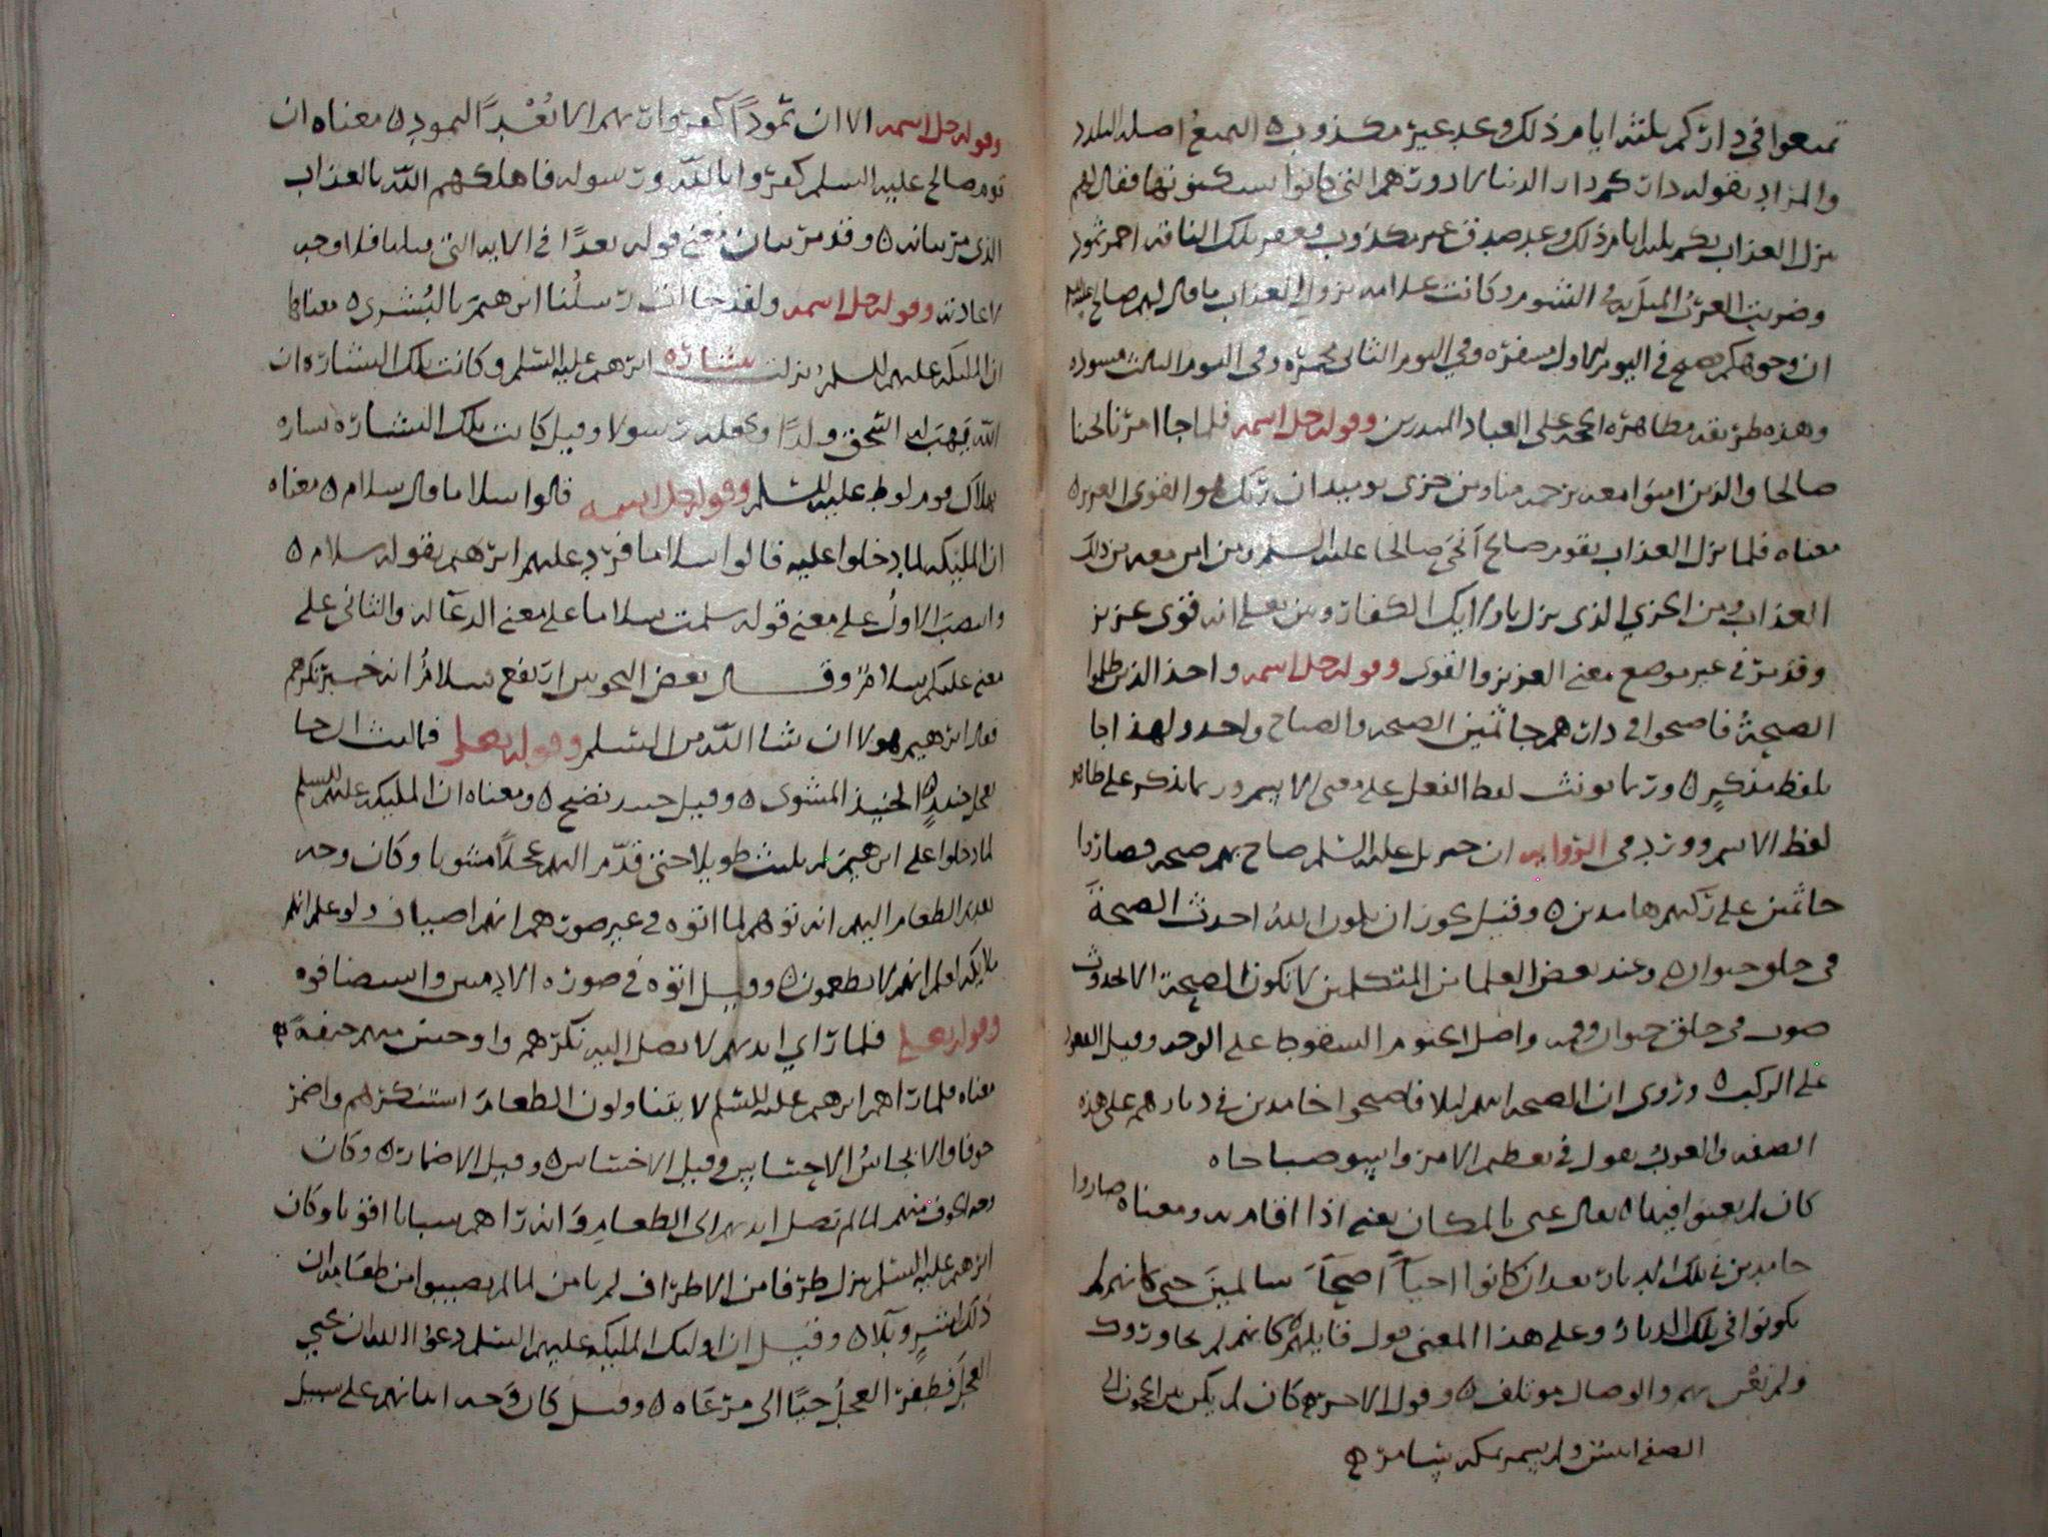 تمتعوا في داركم ثلثة ايام ذلك وعد غير مكذوب ه التمتع اصله التلذذ
والمراد بقوله داركم دار الدنيا لا دورهم التي كانوا يسكنونها فقال لهم
ينزل العذاب بكم ثلثة ايام ذلك وعد صدق غير مكذوب فعقر تلك الناقة احمر ثمود
وضربت العرب المثل به في الشوم وكانت علامة نزول العذاب ما قال لهم صالح عليه السلم
ان وجوهكم تصبح في اليوم الاول مصفرة وفي اليوم الثاني محمرة وفي اليوم الثالث مسودة
وهذه طريقة مظاهرة الحجة على العباد المنذرين وقوله جل اسمه فلما جا امرنا نجينا
صالحا والذين امنوا معه برحمة منا ومن خزي يوميذ ان ربك هو القوي العزيز ه
معناه فلما نزل العذاب بقوم صالح انجى صالحا عليه السلم ومن امن معه من ذلك
العذاب ومن الخزي الذي نزل باولايك الكفار ومن يعلم انه قوي عزيز
وقد مر في غير موضع معنى العزيز والقوى وقوله جل اسمه واخذ الذين ظلموا
الصيحة فاصبحوا في دارهم جاثمين الصيحة والصياح واحد ولهذا جا
بلفظ مذكر ه وربما يونث لفظ الفعل على معنى الاسم وربما يذكر على ظاهر
لفظ الاسم وورد في الرواية ان جبريل عليه السلم صاح بهم صيحة فصاروا
جاثمين على ركبهم هامدين ه وقيل يجوز ان يكون الله احدث الصيحة
في حلق حيوان ه وعند بعض العلما من المتكلمين لا تكون الصيحة الا لحدوث
صوت في حلق حيوان وفمه واصل الجثوم السقوط على الوجه وقيل القعود
على الركب ه وروى ان الصيحة اتتهم ليلا فاصبحوا خامدين في ديارهم على هذه
الصفة والعرب تقول في تعظيم الامر واسو صباحاه
كان لم يغنوا فيها ه يقال غنى بالمكان يغنى اذا اقام به ومعناه صاروا
خامدين في تلك الديار بعد ان كانوا احيا اصحا سالمين حتى كانهم لم
يكونوا في تلك الديار وعلى هذا المعنى قول قايلهم كانهم لم يجاوروك
ولم نغن بهم والوصال موتلف ه وقول الاخر كان لم يكن بين الحجون الى
الصفا انيس ولم يسمر بمكة سامر ه
وقوله جل اسمه الا ان ثمودا كفروا ربهم الا بعدا لثمود ه معناه ان
قوم صالح عليه السلم كفروا بالله ورسوله فاهلكهم الله بالعذاب
الذي مر بيانه ه وقد مر بيان معنى قوله بعدا في الاية التي قبلها فلا وجه
لاعادته وقوله جل اسمه ولقد جات رسلنا ابرهيم بالبشرى ه معناها
ان الملئكة عليهم السلم نزلت ببشارة ابرهيم عليه السلم وكانت تلك البشارة ان
الله يهب له اسحق ولدا ويجعله رسولا وقيل كانت تلك البشارة بشارة
بهلاك قوم لوط عليه السلم وقوله جل اسمه قالوا سلاما قال سلام ه معناه
ان المليكة لما دخلوا عليه قالوا سلاما فرد عليهم ابرهيم بقوله سلام ه
وانتصب الاول على معنى قوله سلمت سلاما على معنى الدعا له والثاني على
معنى عليكم سلام وقال بعض النحويين ارتفع سلام انه خبر
فقال ابرهيم هولا ان شا الله من السلم وقوله تعلى فما لبث ان جا
بعجل حنيذ ه الحنيذ المشوى ه وقيل حنيذ نضيج ه ومعناه ان المليكة عليهم السلم
لما دخلوا على ابرهيم لم يلبث طويلا حتى قدم اليهم عجلا مشويا وكان وجه
تقديم الطعام اليهم انه توهم لما اتوه في غير صورهم انهم اضياف ولو علم انهم
ملايكة لعلم انهم لا يطعمون ه وقيل اتوه في صورة الادميين واستضافوه
وقوله تعلى فلما راي ايديهم لا تصل اليه نكرهم واوجس منهم خيفة ه
معناه فلما راهم ابرهيم عليه السلم لا يتناولون الطعام استنكرهم واضمر
خوفا والايجاس الاحساس وقيل الاختلاس ه وقيل الاضمار ه وكان
وجه الخوف منهم لما لم تصل ايديهم الى الطعام وانه راهم شبابا اقويا وكان
ابرهيم عليه السلم ينزل طرفا من الاطراف لم يامن لما لم يصيبوا من طعامه ان
ذلك لشر وبلا ه وقيل ان اوليك المليكة عليهم السلم دعوا الله ان يحيي
العجل فطفر العجل حيا الى مرعاه ه وقيل كان وجه اتيانهم على سبيل